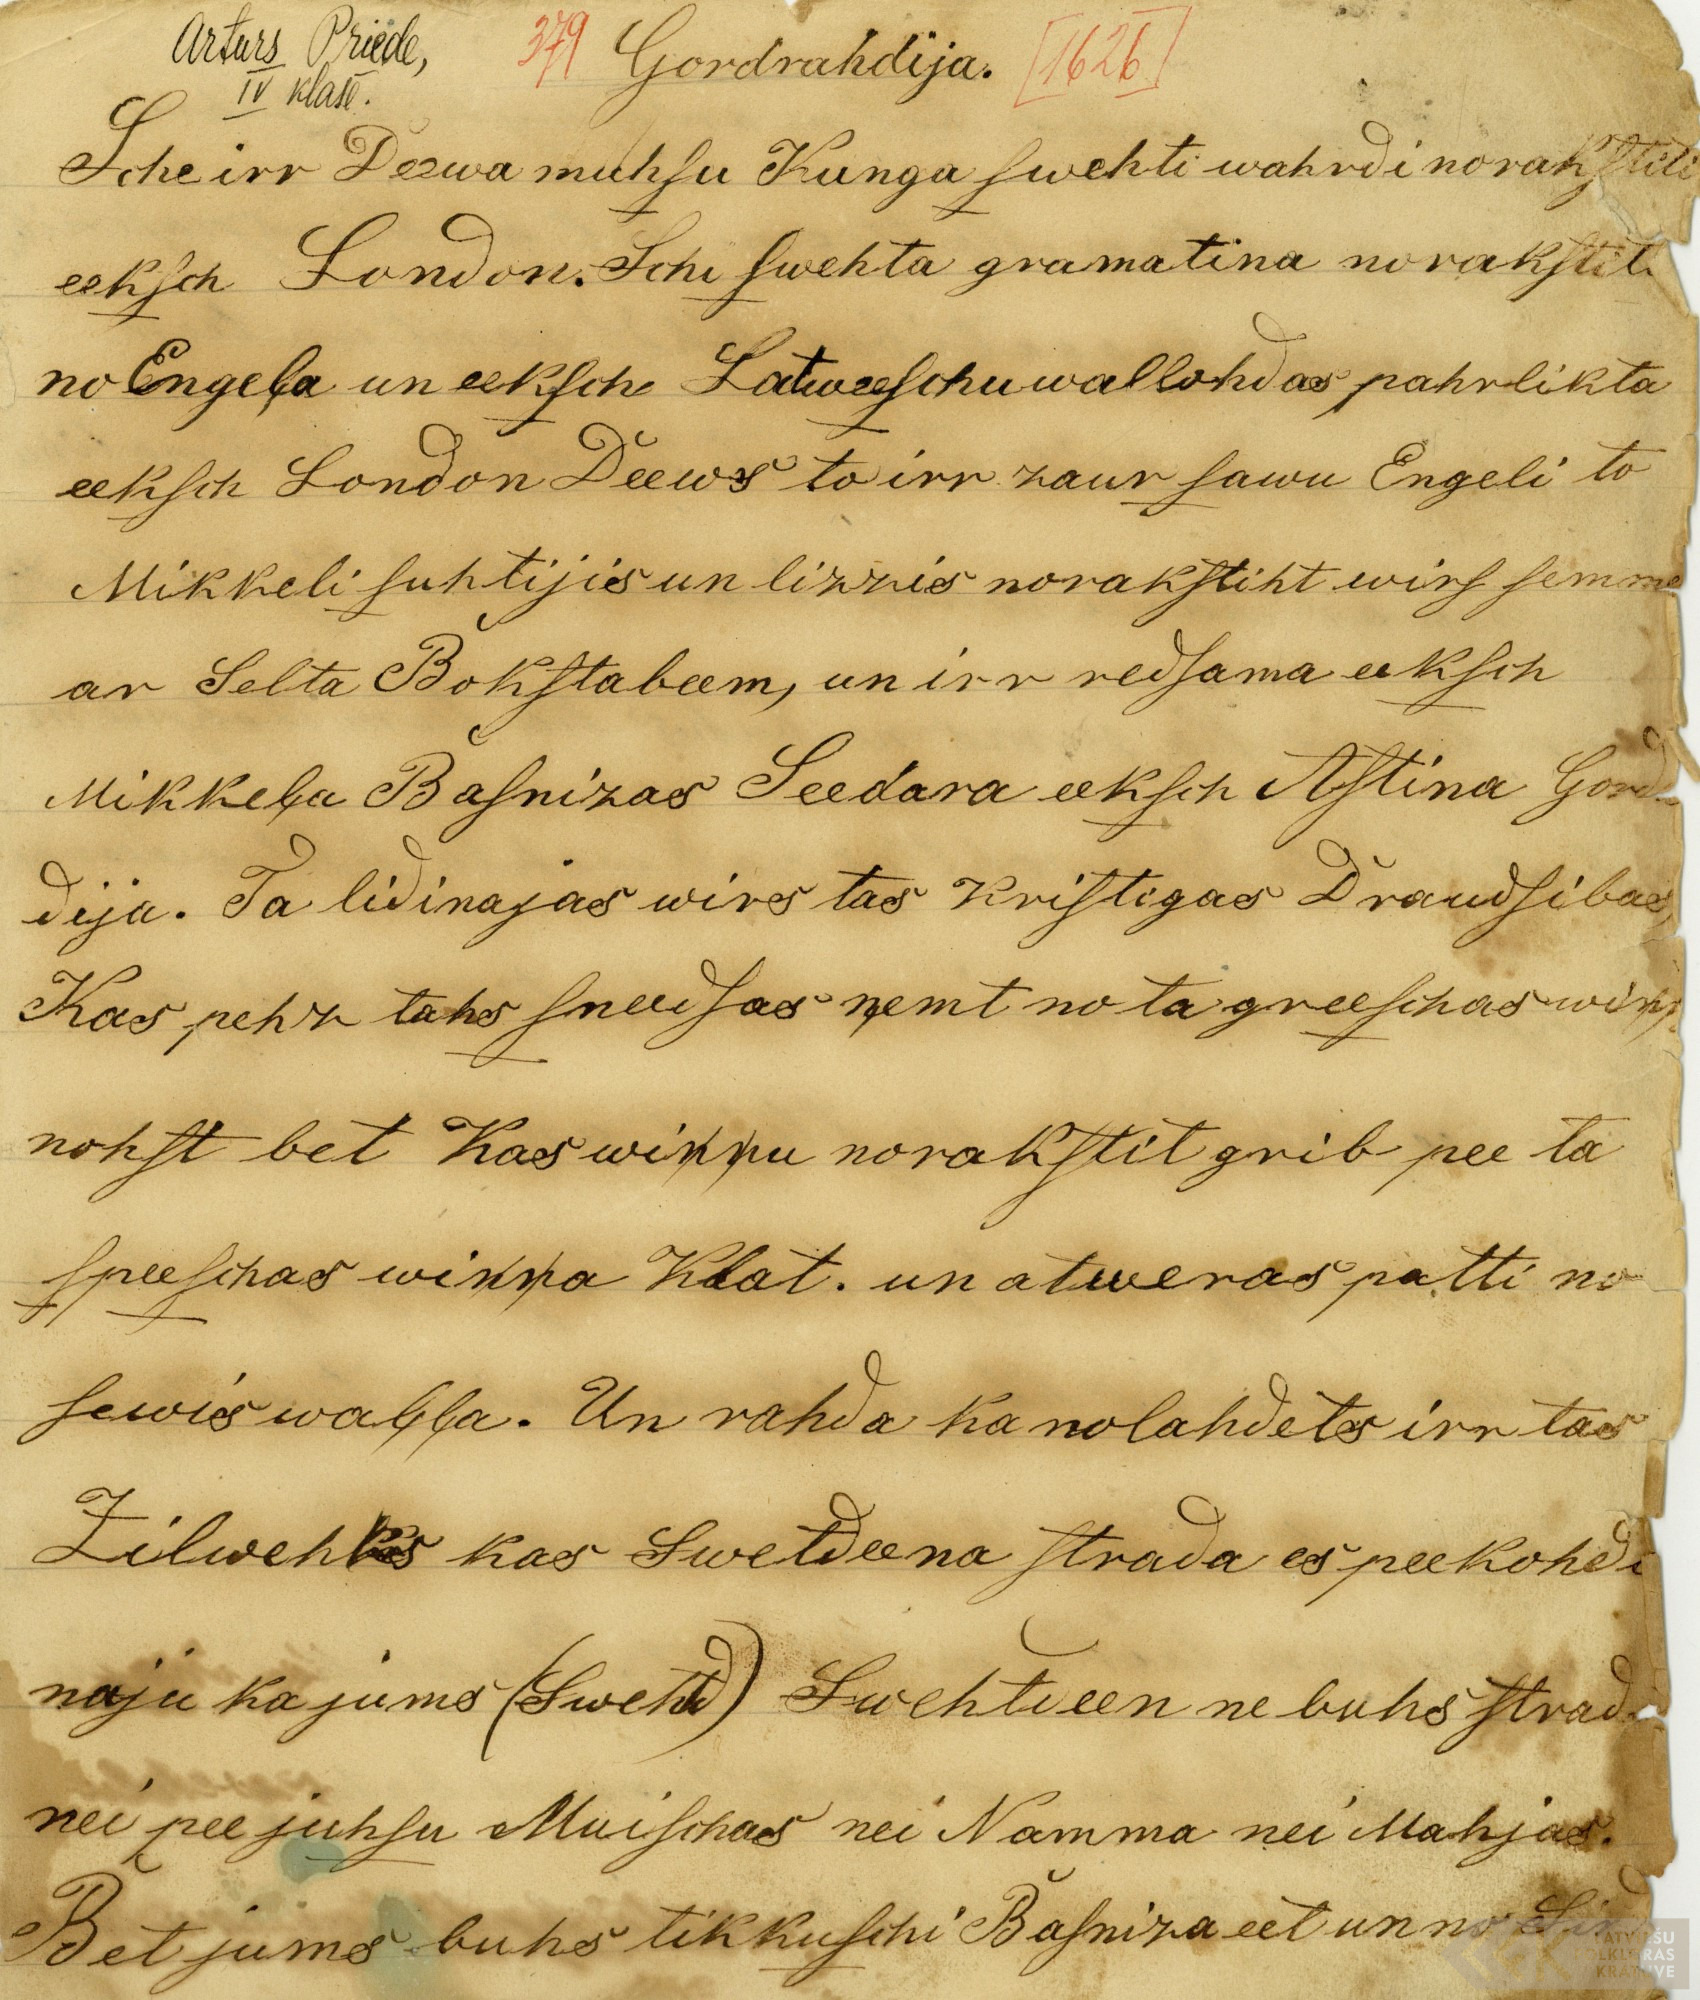 Arturs Priede,
IV klasē.
379
Gordrahdija.
[1626]
Sche irr Deewa muhſu Kunga ſwehti wahrdi norakſtiti
eekſch London. Schi ſwehta gramatina norakſtit
no Engeļa un eekſch Latweeſchu wallohdas pahrlikta
eekſch London Deews to irr zaur ſawu Engeli to
Mikkeli ſuhtijis un lizzis norakſtiht wirſ ſemme
ar Selta Bokſtabeem, un irr redſama eekſch
Mikkeļa Baſnizas Seedara eekſch Aſtina Gord
dija. Ta lidinajas wirs tas Kriſtigas Draudſibas,
Kas pehz tahs ſneedſas ņemt no ta greeſchas wiņņ
nohſt bet Kas wiņņu norakſtit grib pee ta
ſpeeſchas wiņņa Klat. un atweras patti no
ſewis waļļa. Un rahda ka nolahdets irr tas
Zilwehks kas Swetdeena ſtrada es peekohdi
naju ka jums (Swehtd) Swehtdeen ne buhs ſtrad
nei pee juhſu Muiſchas nei Namma nei Mahjas.
Bet jums buhs tikkuſchi Baſniza eet un no
LATVIEŠU
FOLKLORAS
KRĀTUVE